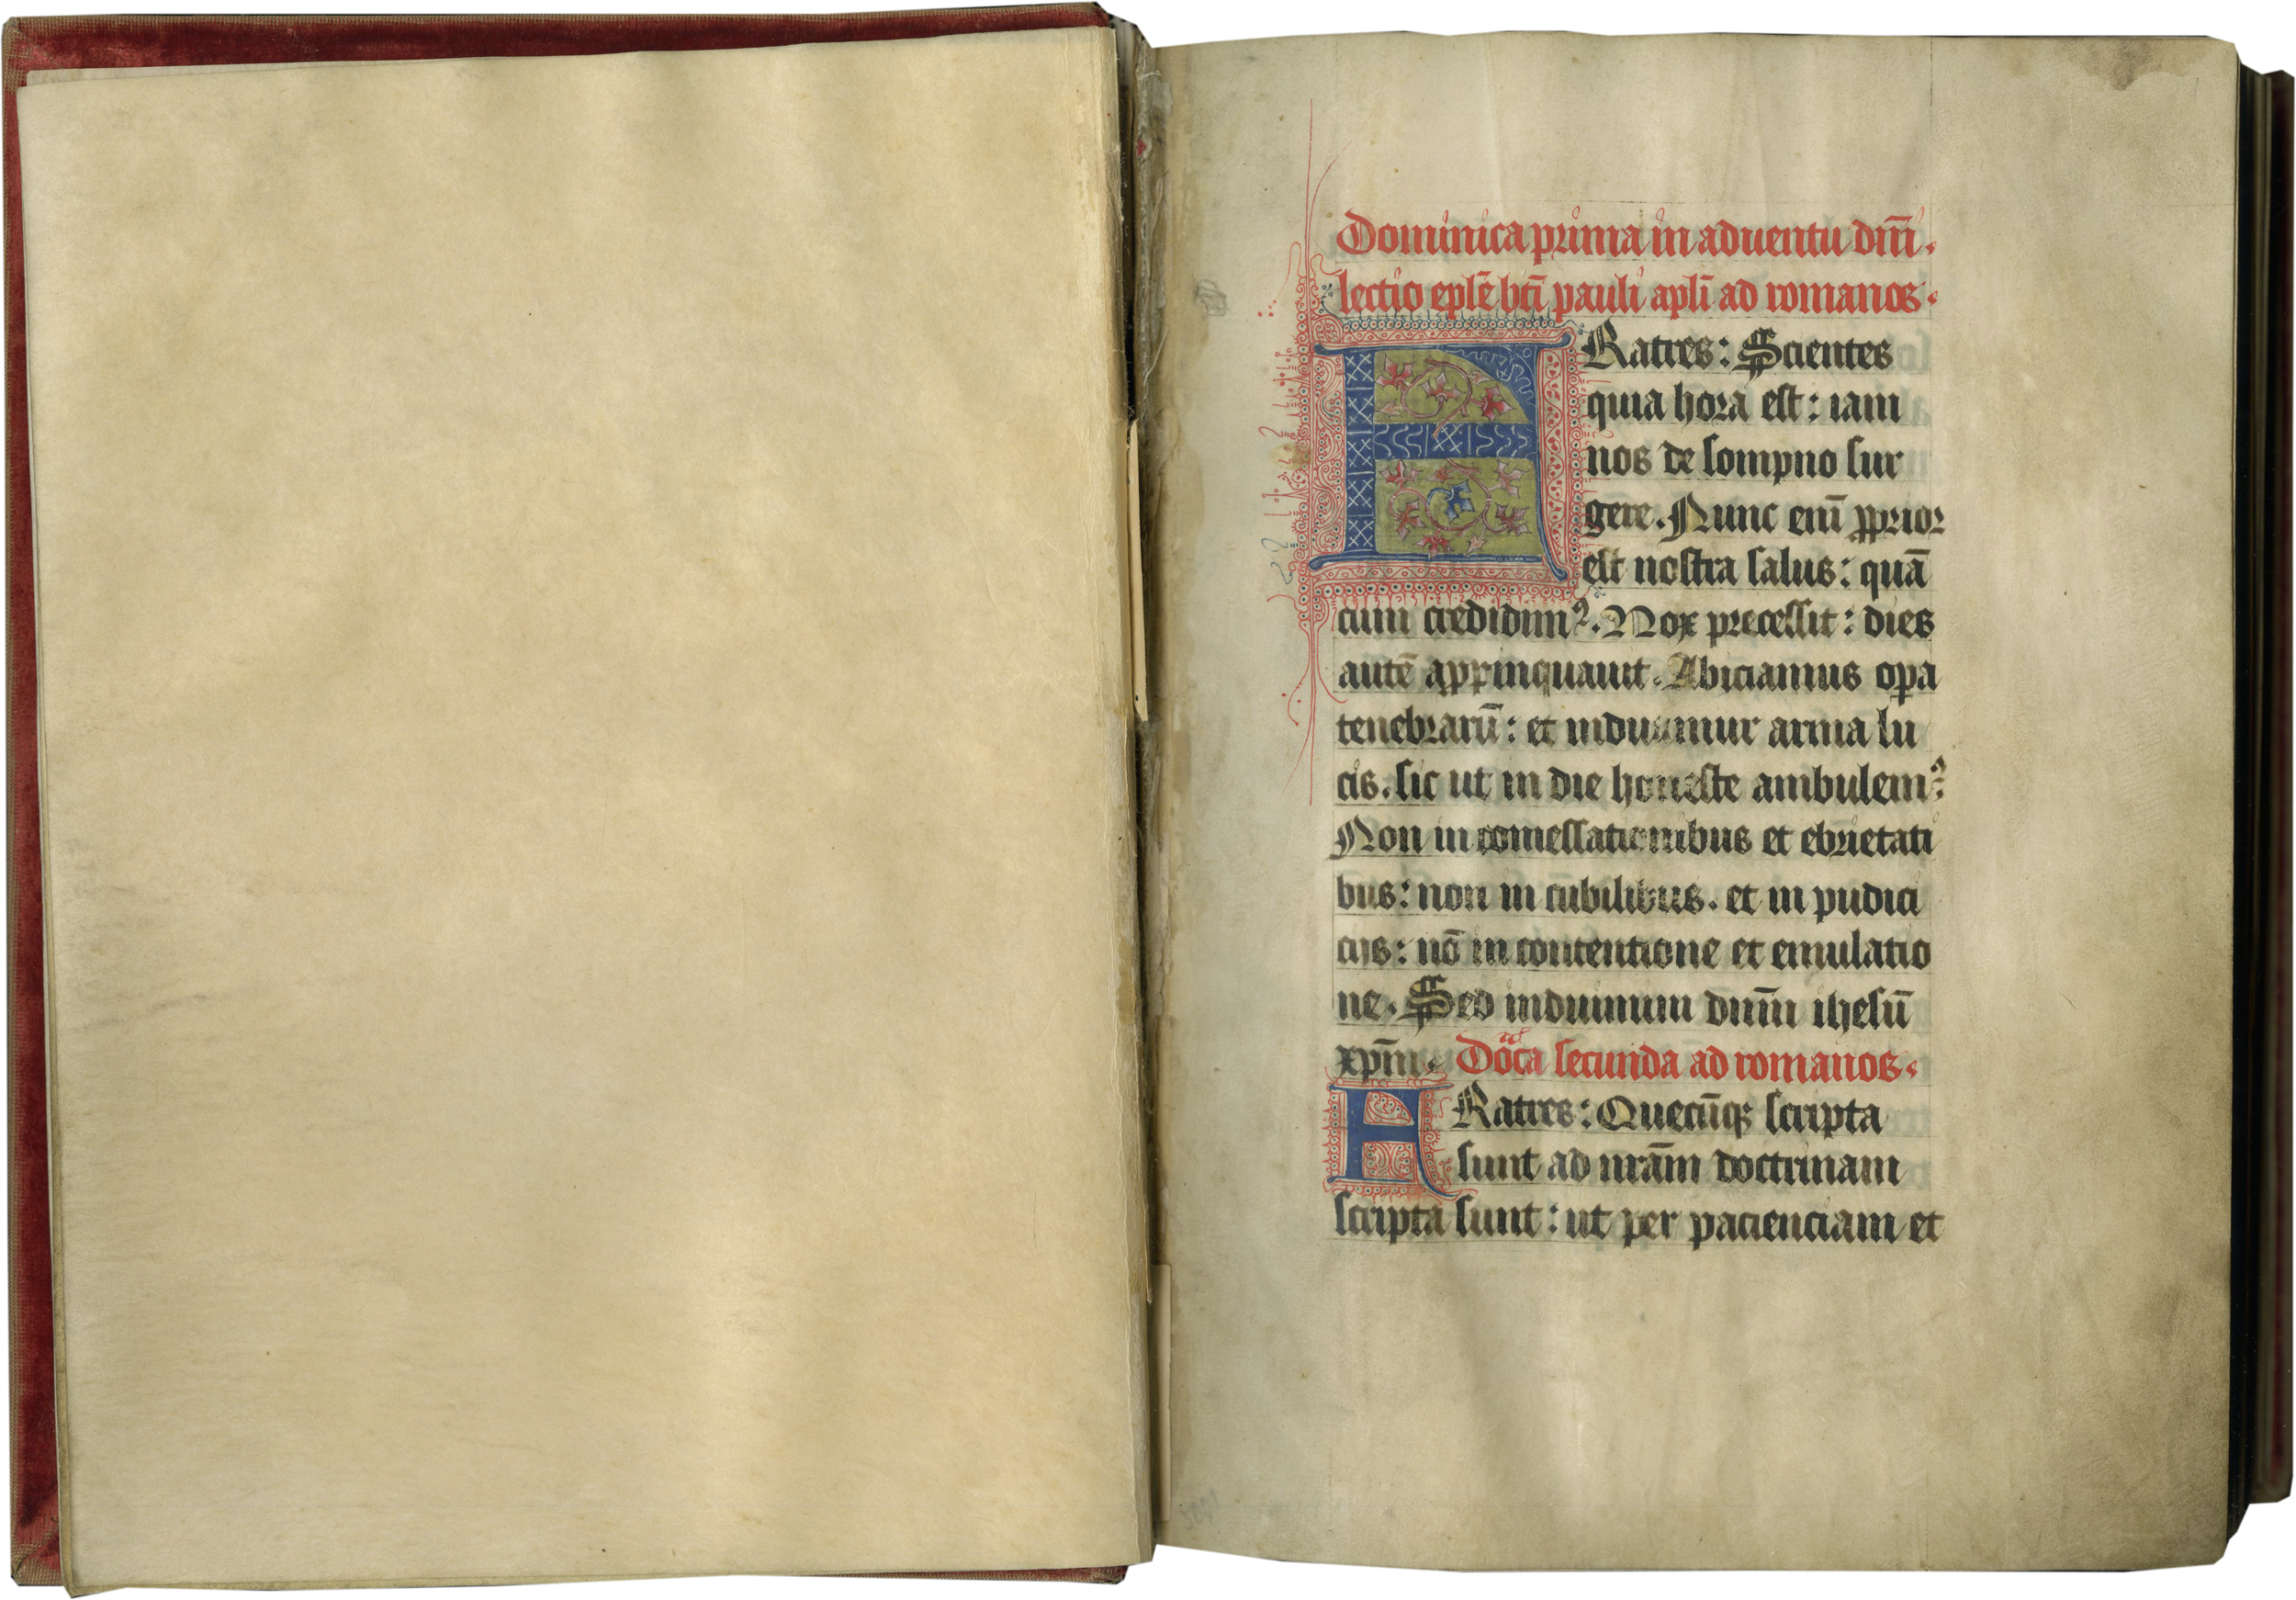 Dominica prima in aduentu dn̄i.
lectio epl̄e bt̄i pauli apl̄i ad romanos.
FRatres: Scientes
quia hora est: iam
nos de sompno sur
gere. Nunc eni̅ ꝓprior
est nostra salus: quā
cum credidimꝰ. Nox precessit: dies
autē apprinquauit. Abiciamus oꝑa
tenebrarū: et induamur arma lu
cis. sic ut in die honeste ambulemꝰ:
Non in comessationibus et ebrietati
bus: non in cubilibus. et in pudici
cijs: nō in contentione et emulatio
ne. Sed induimini dn̄m ihesū
xpm̄. Dōca secunda ad romanos.
FRatres: Quecūqꝫ scripta
sunt ad nrām doctrinam
scripta sunt: ut per pacienciam et